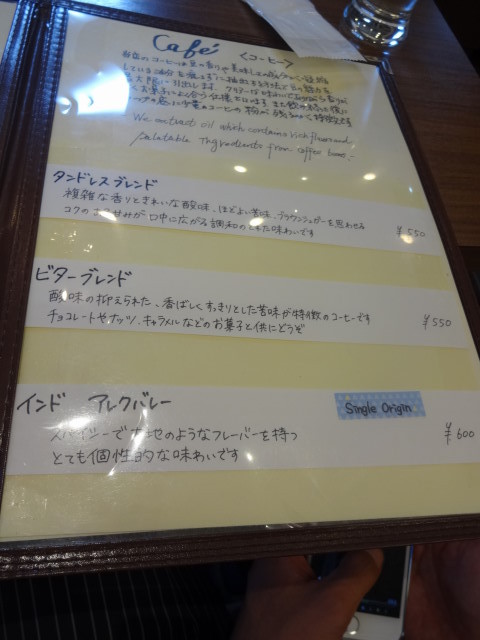 Café 〈コーヒー〉
当店のコーヒーは豆の香りや美味しさの
している油分を
に引出します。クリアーな
お菓子によく合う
We extract oil which contains rich flavor and
palatable Ingredients from coffee beans.
タンドレスブレンド
複雑な香りときれいな酸味、ほどよい苦味、ブラウンシュガーを思わせる
コクのある甘みが口中に広がる調和のとれた味わいです
¥550
ビターブレンド
酸味の抑えられた、香ばしくすっきりとした苦味が特徴のコーヒーです
チョコレートやナッツ、キャラメルなどのお菓子と供にどうぞ
¥550
インド アレクバレー
Single Origin
スパイシーで大地のようなフレーバーを持つ
とても個性的な味わいです
¥600